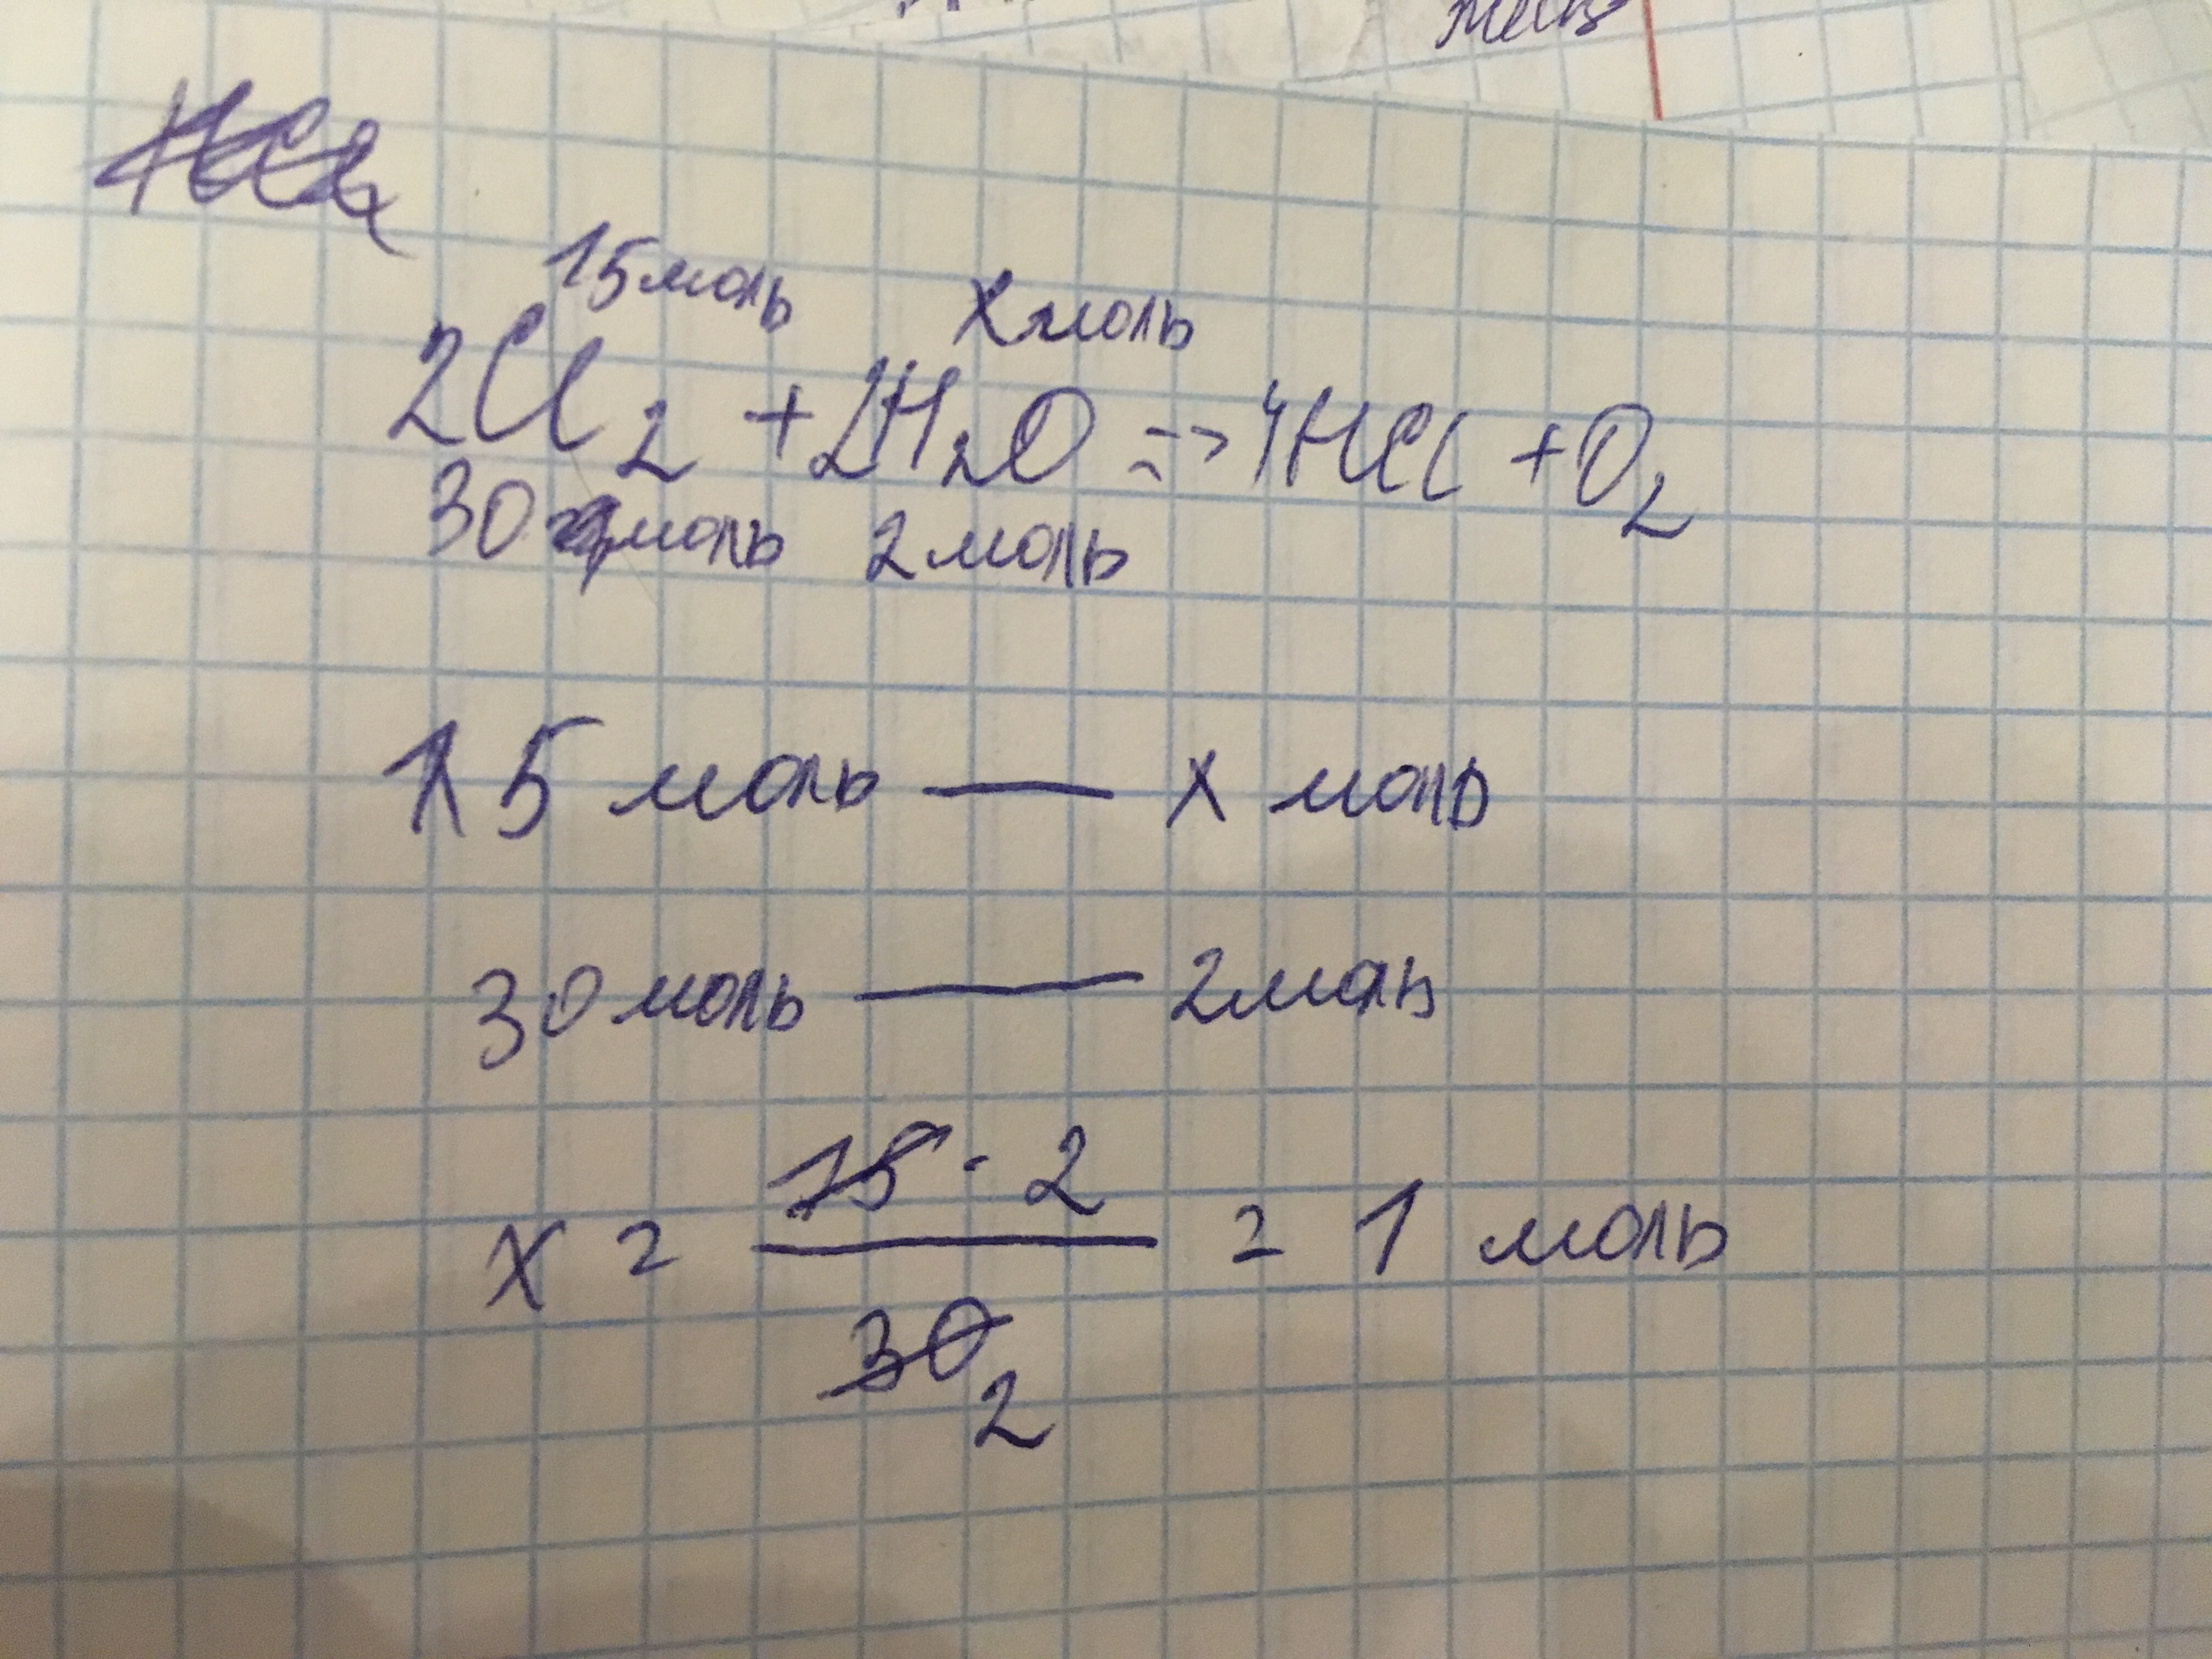 15 моль x моль
2Cl₂ + 2H₂O => 4HCl + O₂
30 моль 2 моль
15 моль — x моль
30 моль — 2 моль
x = 15 · 2 / 30 2 = 1 моль